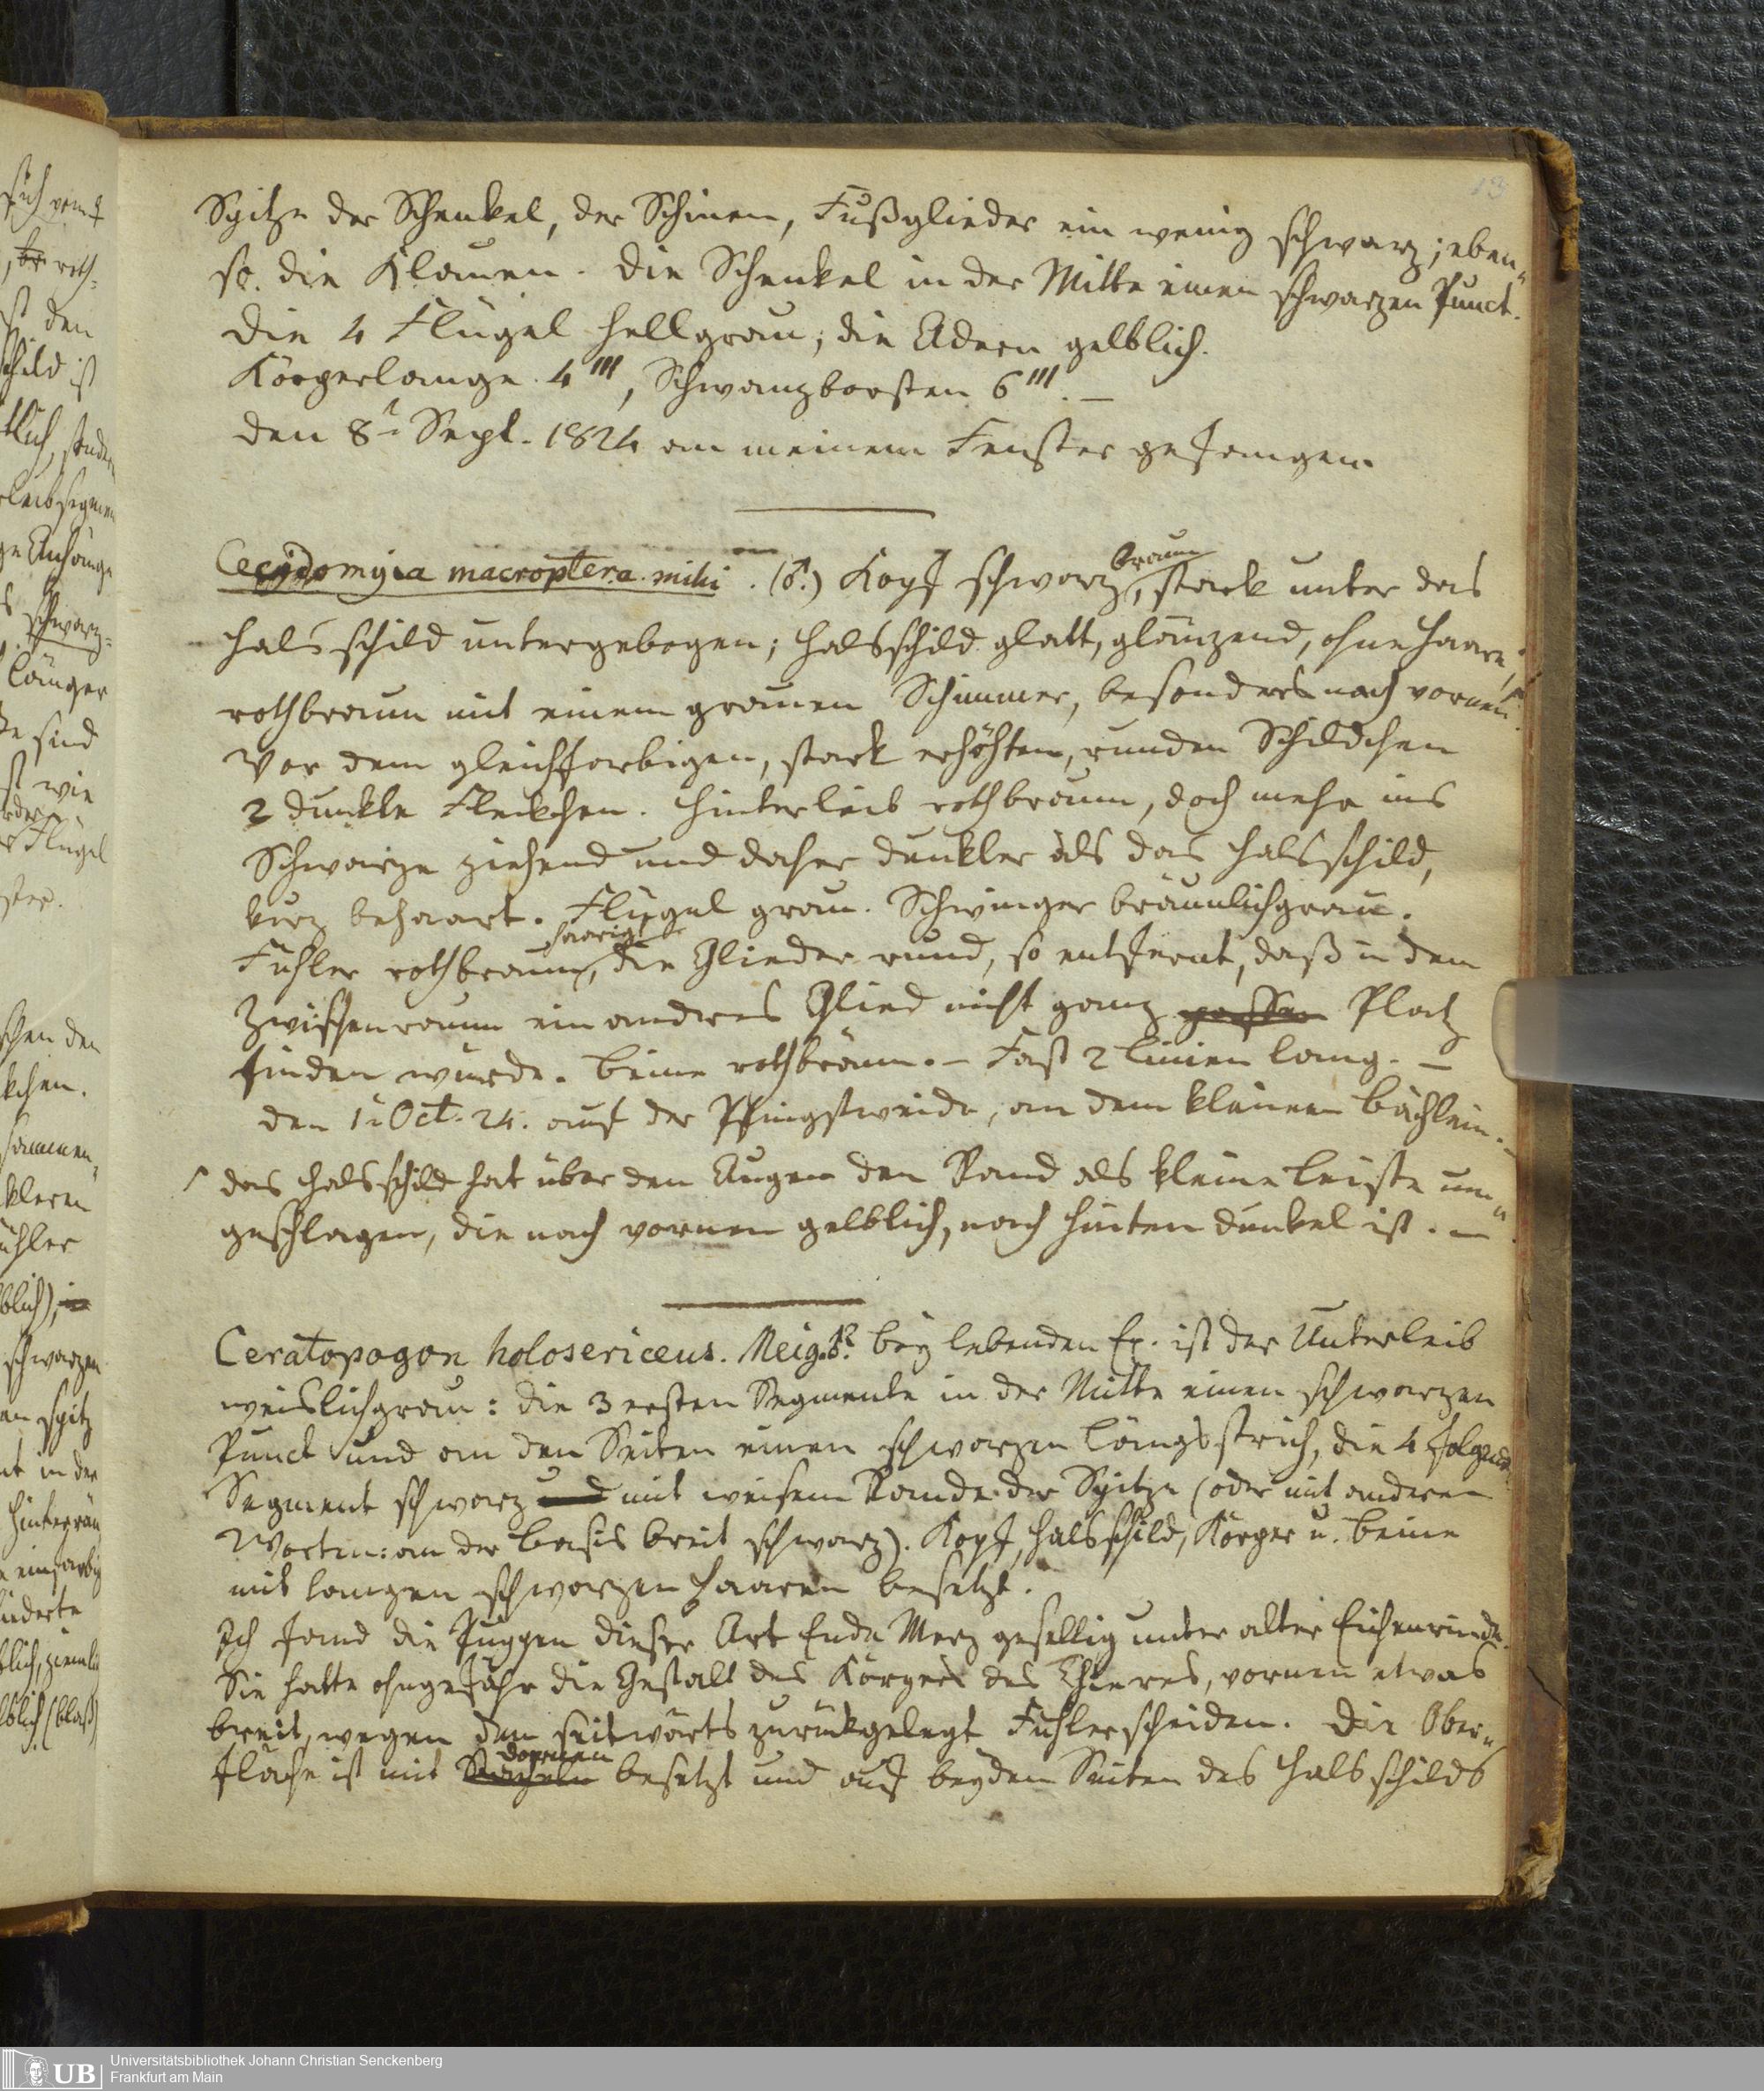 13
Spitze der Schenkel, der Schinen, Fußglieder ein wenig schwarz; eben„
so die Klauen. Die Schenkel in der Mitte einen schwarzen Punct.
Die 4 Flügel hellgrau; die Adern gelblich.
Körperlänge 4''', Schwanzborsten 6'''. —
den 8t Sept. 1824 an meinem Fenster gefangen.
Cecydomyia macroptera mihi. (♂.) Kopf schwarz braun, stark unter das
Halsschild untergebogen; Halsschild glatt, glänzend, ohne Haare,
rothbraun mit einem grauen Schimmer, besonders nach vornen.
Vor dem gleichfarbigen, stark erhöhten, runden Schildchen
2 dunkle Fleckchen. Hinterleib rothbraun, doch mehr ins
Schwarze ziehend und daher dunkler als das Halsschild,
kurz behaart. Flügel grau. Schwinger bräunlichgrau.
Fühler rothbraun, haarig, die Glieder rund, so entfernt, daß in dem
Zwischenraum ein anderes Glied nicht ganz Platz
finden würde. Beine rothbraun. — Fast 2 Linien lang. —
den 1t Oct. 24. auf der Pfingstweide, an dem kleinen Bächlein. —
das Halsschild hat über den Augen den Rand als kleine Leiste um„
geschlagen, die nach vornen gelblich, nach hinten dunkel ist. —
Ceratopogon holosericeus. Meig. ♂? Bey lebenden Ex. ist der Unterleib
weislichgrau: die 3 ersten Segmente in der Mitte einen schwarzen
Punct und an den Seiten einen schwarzen Längsstrich, die 4 folgend.
Segment schwarz und mit weisem Rande der Spitze (oder mit anderen
Worten: an der Basis breit schwarz). Kopf, Halsschild, Körper u. Beine
mit langen schwarzen Haaren besetzt.
Ich fand die Puppen dieser Art Ende Merz gesellig unter alter Eichenrinde.
Sie hatte ohngefähr die Gestalt des Körpers des Thieres, vornen etwas
breit, wegen den seitwärts zurückgelegt Fühlerscheiden. Die Ober„
fläche ist mit Stacheln dornen besetzt und auf beyden Seiten des Halsschilds
UB
Universitätsbibliothek Johann Christian Senckenberg
Frankfurt am Main